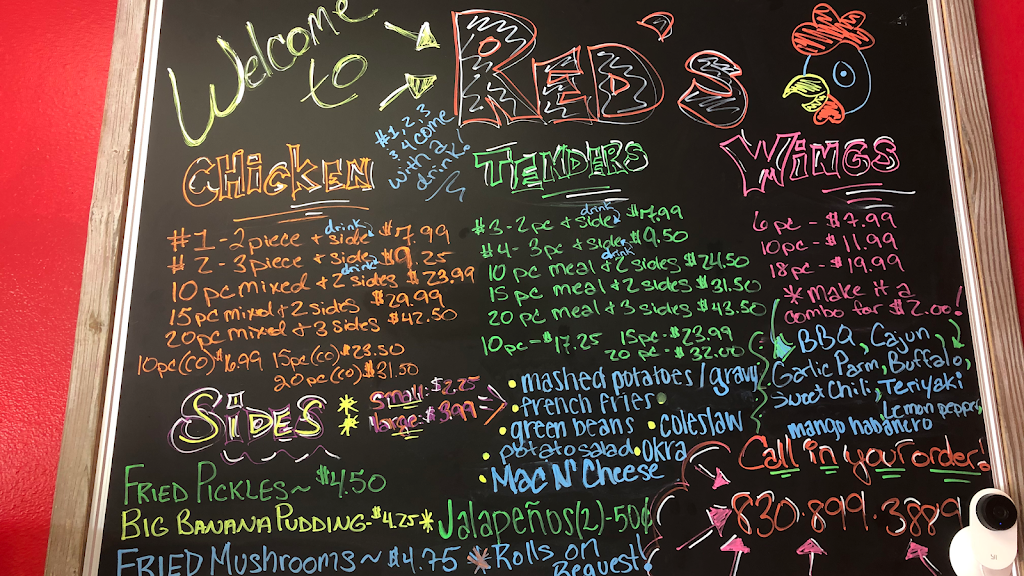 Welcome to RED'S
#1, 2, 3
3 4 come
with a
drink.
CHICKEN
#1 - 2 piece + side drink $7.99
#2 - 3 piece + side drink $9.25
10 pc mixed + 2 sides $23.99
15 pc mixed + 2 sides $29.99
20 pc mixed + 3 sides $42.50
10 pc (CO) $16.99 15 pc (CO) $23.50
20 pc (CO) $31.50
TENDERS
#3 - 2 pc + side drink $7.99
#4 - 3 pc + side drink $9.50
10 pc meal + 2 sides $24.50
15 pc meal + 2 sides $31.50
20 pc meal + 3 sides $43.50
10 pc - $17.25 15 pc - $23.99
20 pc - $32.00
WINGS
6 pc - $7.99
10 pc - $11.99
18 pc - $19.99
* make it a
combo for $2.00!
BBQ, Cajun,
Garlic Parm, Buffalo,
Sweet Chili, Teriyaki
Lemon pepper,
mango habanero
SIDES
Small - $2.25
large - $3.99
• mashed potatoes / gravy
• french fries
• green beans • coleslaw
• potato salad • OKRA
• Mac N' Cheese
Call in your order.
830.899.3889
FRIED PICKLES ~ $4.50
BIG BANANA PUDDING - $4.25 * Jalapeños (2) - 50¢
FRIED MUSHROOMS ~ $4.75 * Rolls on
Request!